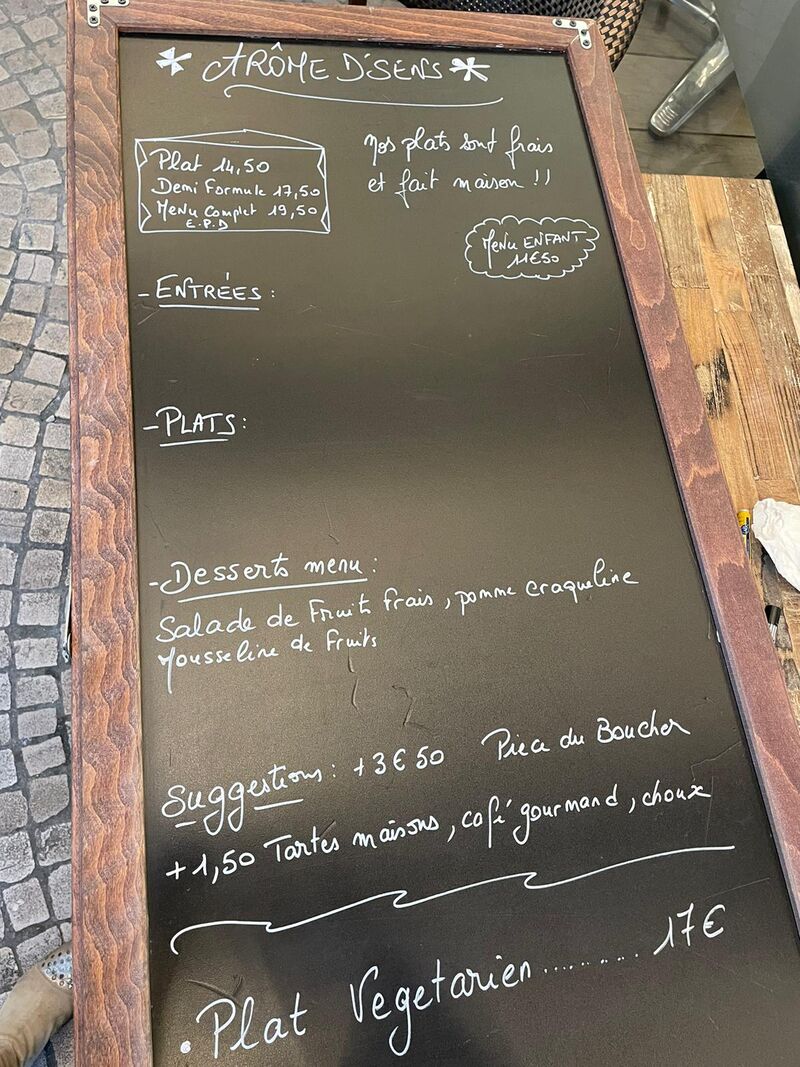 * ARÔME D'SENS *
Plat 14,50
Demi Formule 17,50
Menu Complet 19,50
E.P.D
Nos plats sont frais
et fait maison !!
Menu ENFANT
11€50
- ENTRÉES :
- PLATS :
- Desserts menu :
Salade de Fruits frais, pomme craqueline
Mousseline de fruits
Suggestions : +3€50 Pièce du Boucher
+1,50 Tartes maisons, café gourmand, choux
• Plat Vegetarien ......... 17€